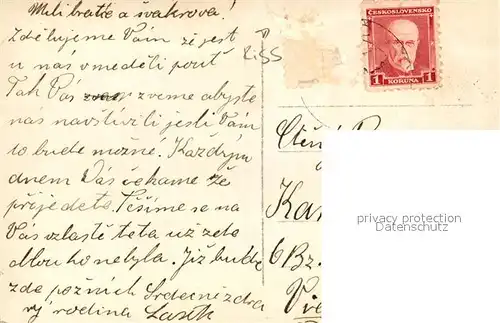 Milí bratře a švakrová!
Zdělujeme Vám že jest
u nás v neděli pouť
Tak Vás zveme abyste
nás navštívili jestli Vám
to bude možné. Každým
dnem Vás čekame že
přijedete. Těšíme se na
Vás vzlaště teta už zde
dlouho nebyla. Již bude
zde po žních Srdečně zdra
vý rodina
R.SS
ČESKOSLOVENSKO
1 KORUNA 1
Ctěný P
Kar
6 Bz.
Vie
privacy protection
Datenschutz